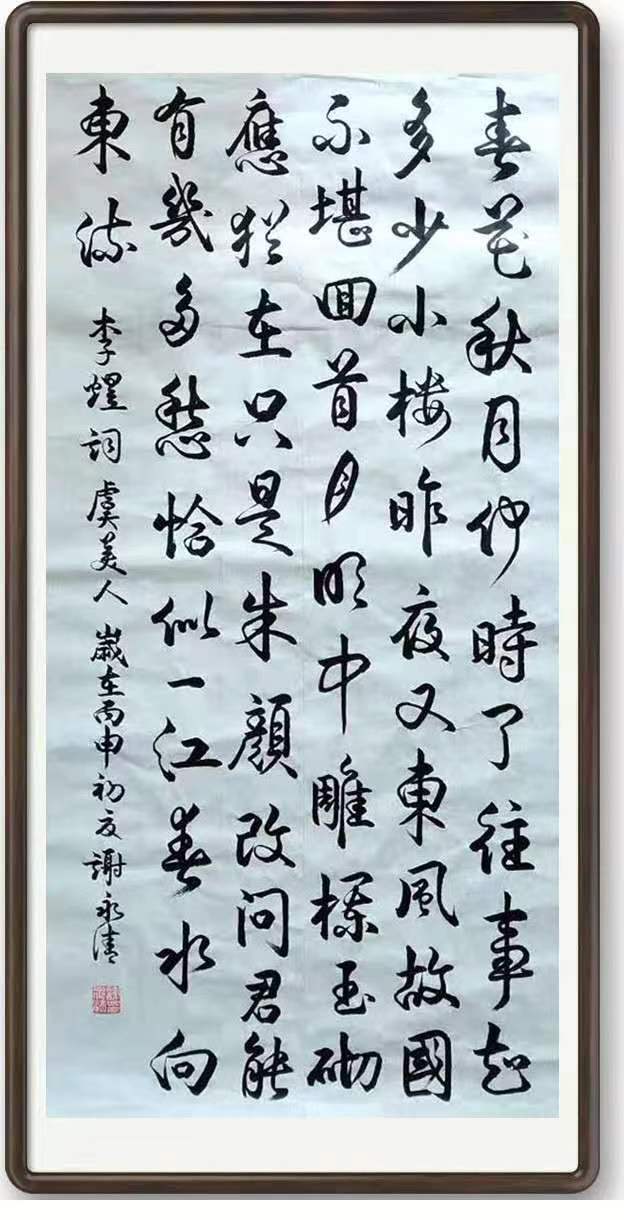 春花秋月何時了往事知
多少小樓昨夜又東風故國
不堪回首月明中雕欄玉砌
應猶在只是朱顏改問君能
有幾多愁恰似一江春水向
東流 李煜詞 虞美人 歲在丙申初夏謝永清